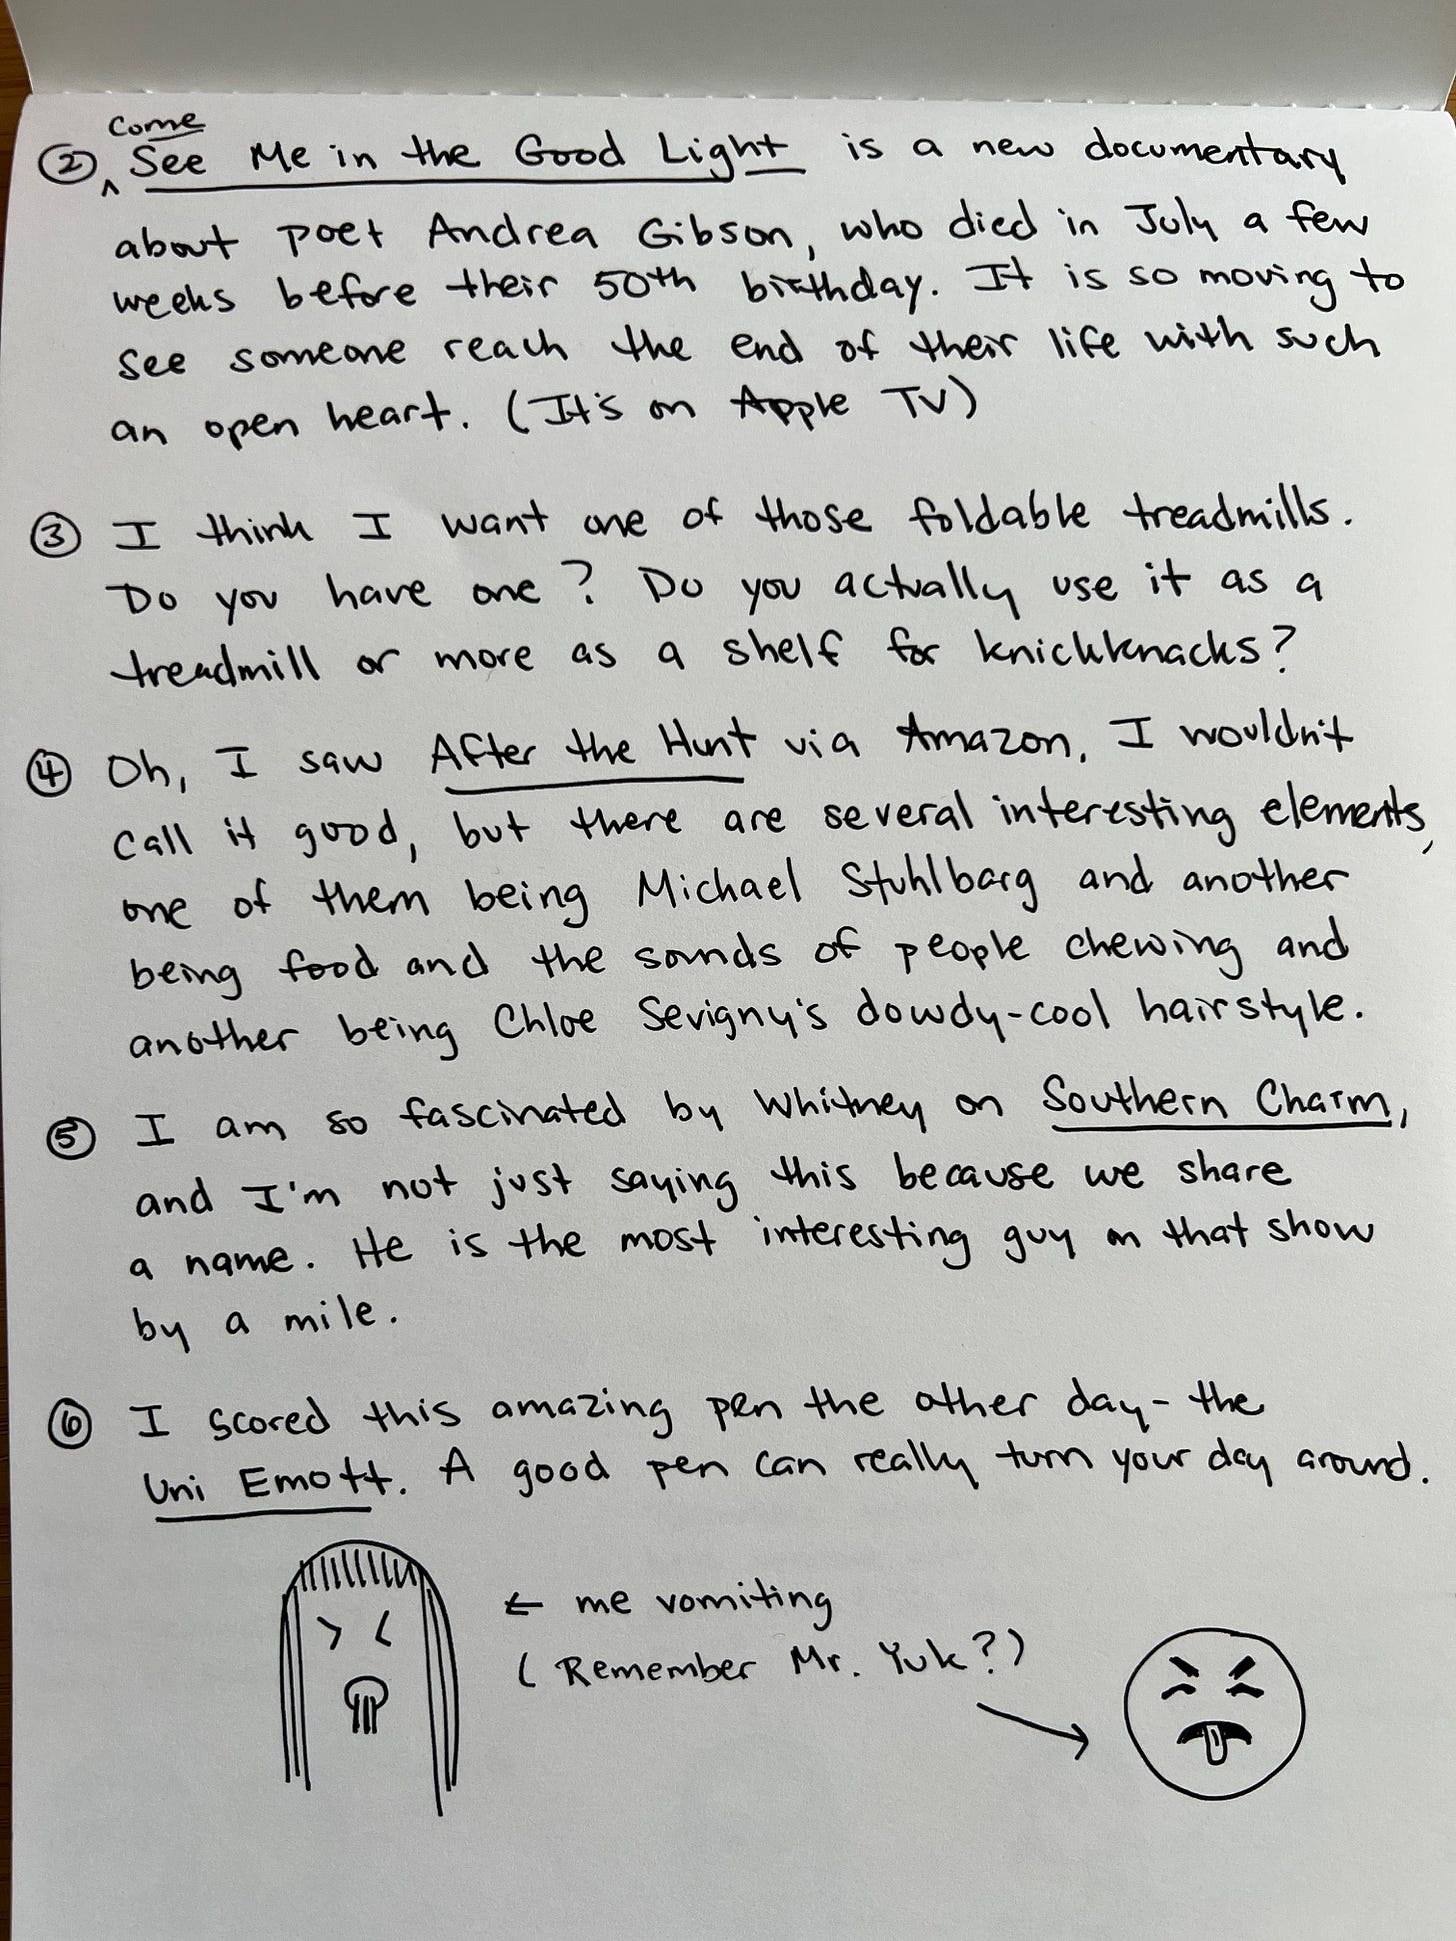 Come
② ^ See Me in the Good Light is a new documentary
about poet Andrea Gibson, who died in July a few
weeks before their 50th birthday. It is so moving to
see someone reach the end of their life with such
an open heart. (It's on Apple TV)
③ I think I want one of those foldable treadmills.
Do you have one? Do you actually use it as a
treadmill or more as a shelf for knickknacks?
④ Oh, I saw After the Hunt via Amazon. I wouldn't
call it good, but there are several interesting elements,
one of them being Michael Stuhlbarg and another
being food and the sounds of people chewing and
another being Chloe Sevigny's dowdy-cool hairstyle.
⑤ I am so fascinated by Whitney on Southern Charm,
and I'm not just saying this because we share
a name. He is the most interesting guy on that show
by a mile.
⑥ I scored this amazing pen the other day- the
Uni Emott. A good pen can really turn your day around.
← me vomiting
(Remember Mr. Yuk?)